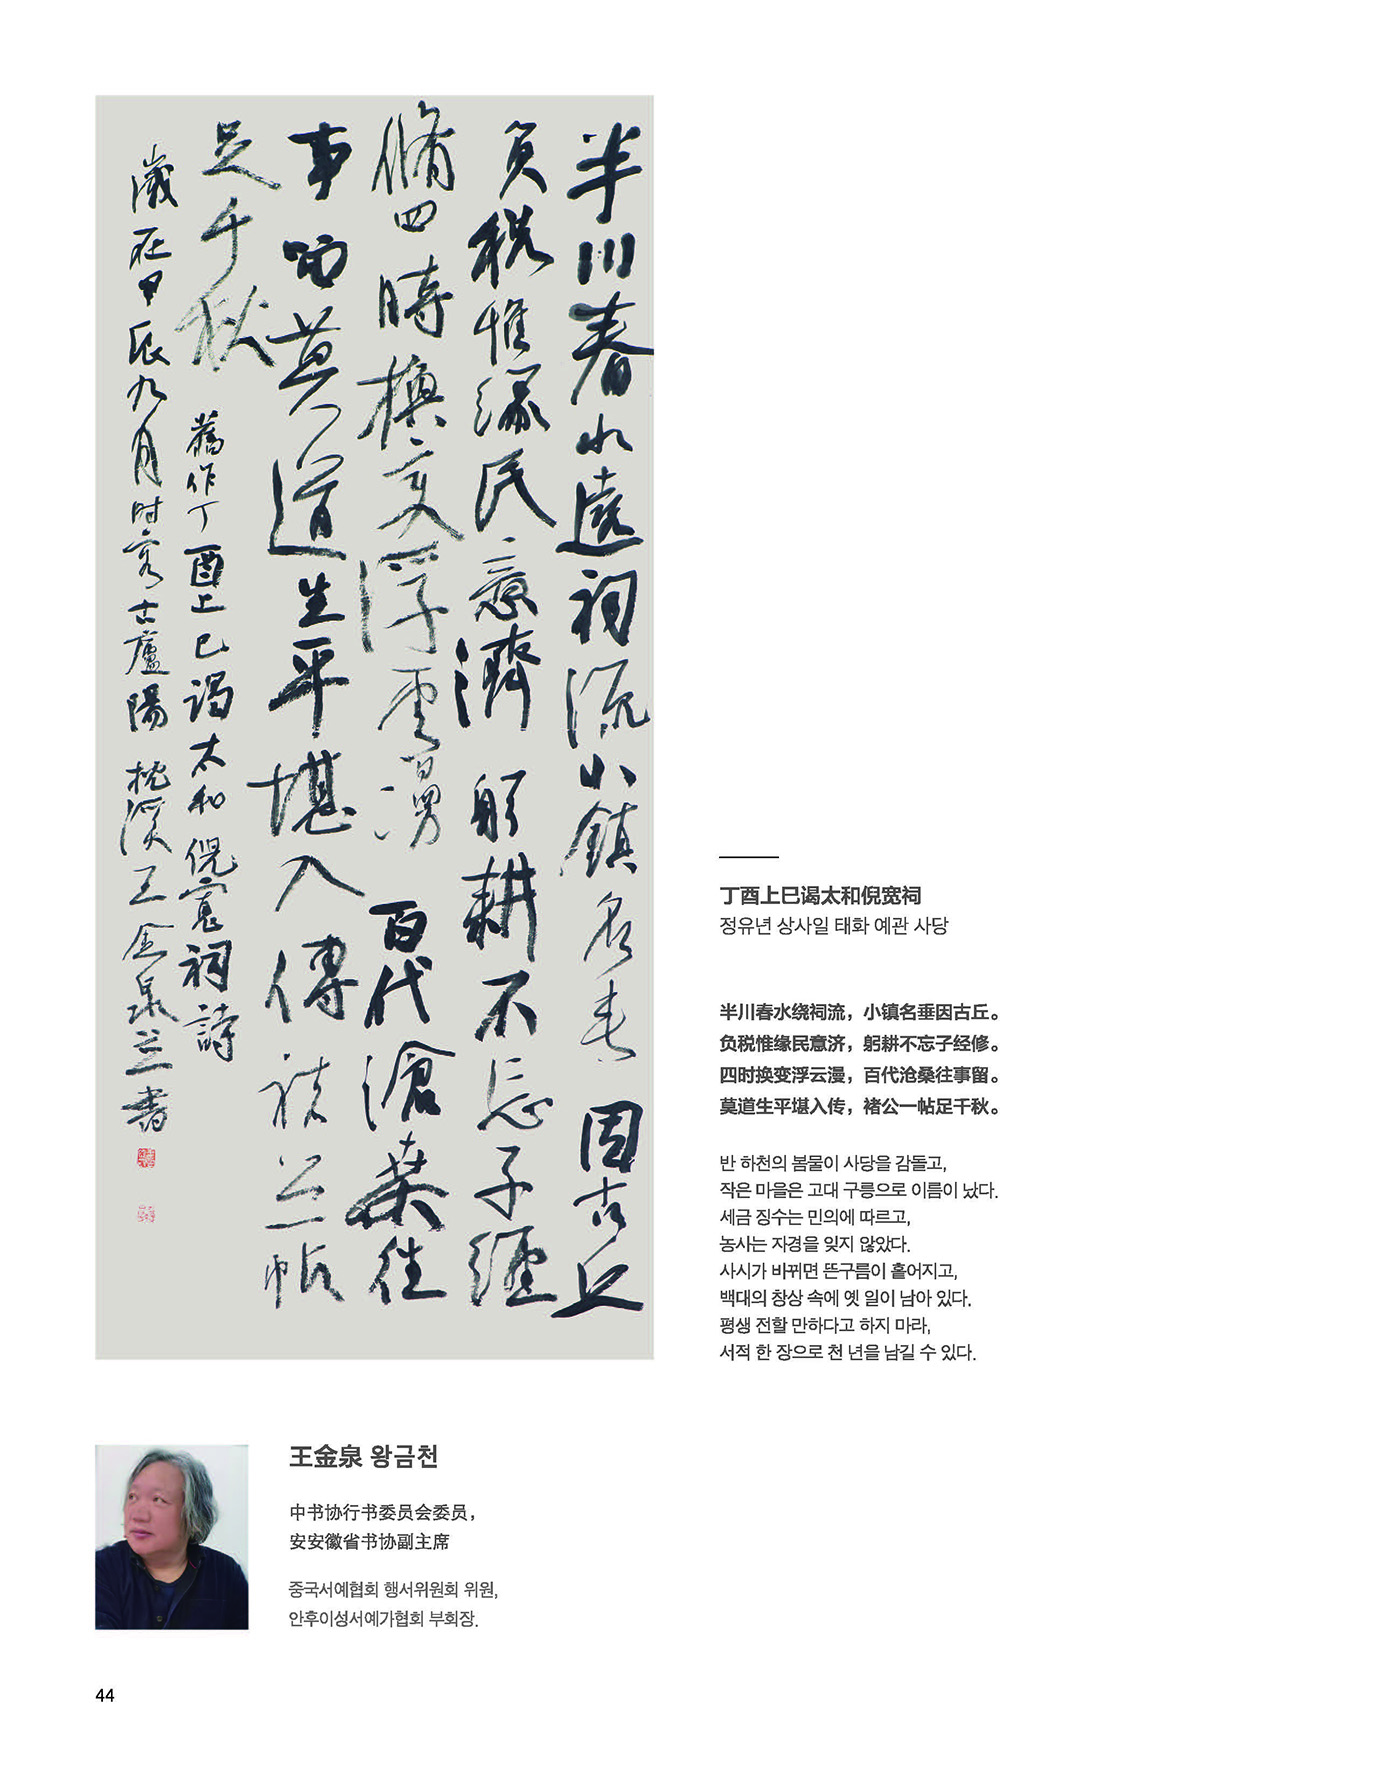 半川春水遶祠流小鎮名垂因古丘
負税惟緣民意濟躬耕不忘子經
脩四時換變浮雲漫百代滄桑往
事留莫道生平堪入傳褚公一帖
足千秋 舊作丁酉上巳謁太和倪寬祠詩
歲在甲辰九月时客古廬陽枕溪王金泉并書
丁酉上巳谒太和倪宽祠
정유년 상사일 태화 예관 사당
半川春水绕祠流，小镇名垂因古丘。
负税惟缘民意济，躬耕不忘子经修。
四时换变浮云漫，百代沧桑往事留。
莫道生平堪入传，褚公一帖足千秋。
반 하천의 봄물이 사당을 감돌고,
작은 마을은 고대 구릉으로 이름이 났다.
세금 징수는 민의에 따르고,
농사는 자경을 잊지 않았다.
사시가 바뀌면 뜬구름이 흩어지고,
백대의 창상 속에 옛 일이 남아 있다.
평생 전할 만하다고 하지 마라,
서적 한 장으로 천 년을 남길 수 있다.
王金泉 왕금천
中书协行书委员会委员，
安安徽省书协副主席
중국서예협회 행서위원회 위원,
안후이성서예가협회 부회장.
44